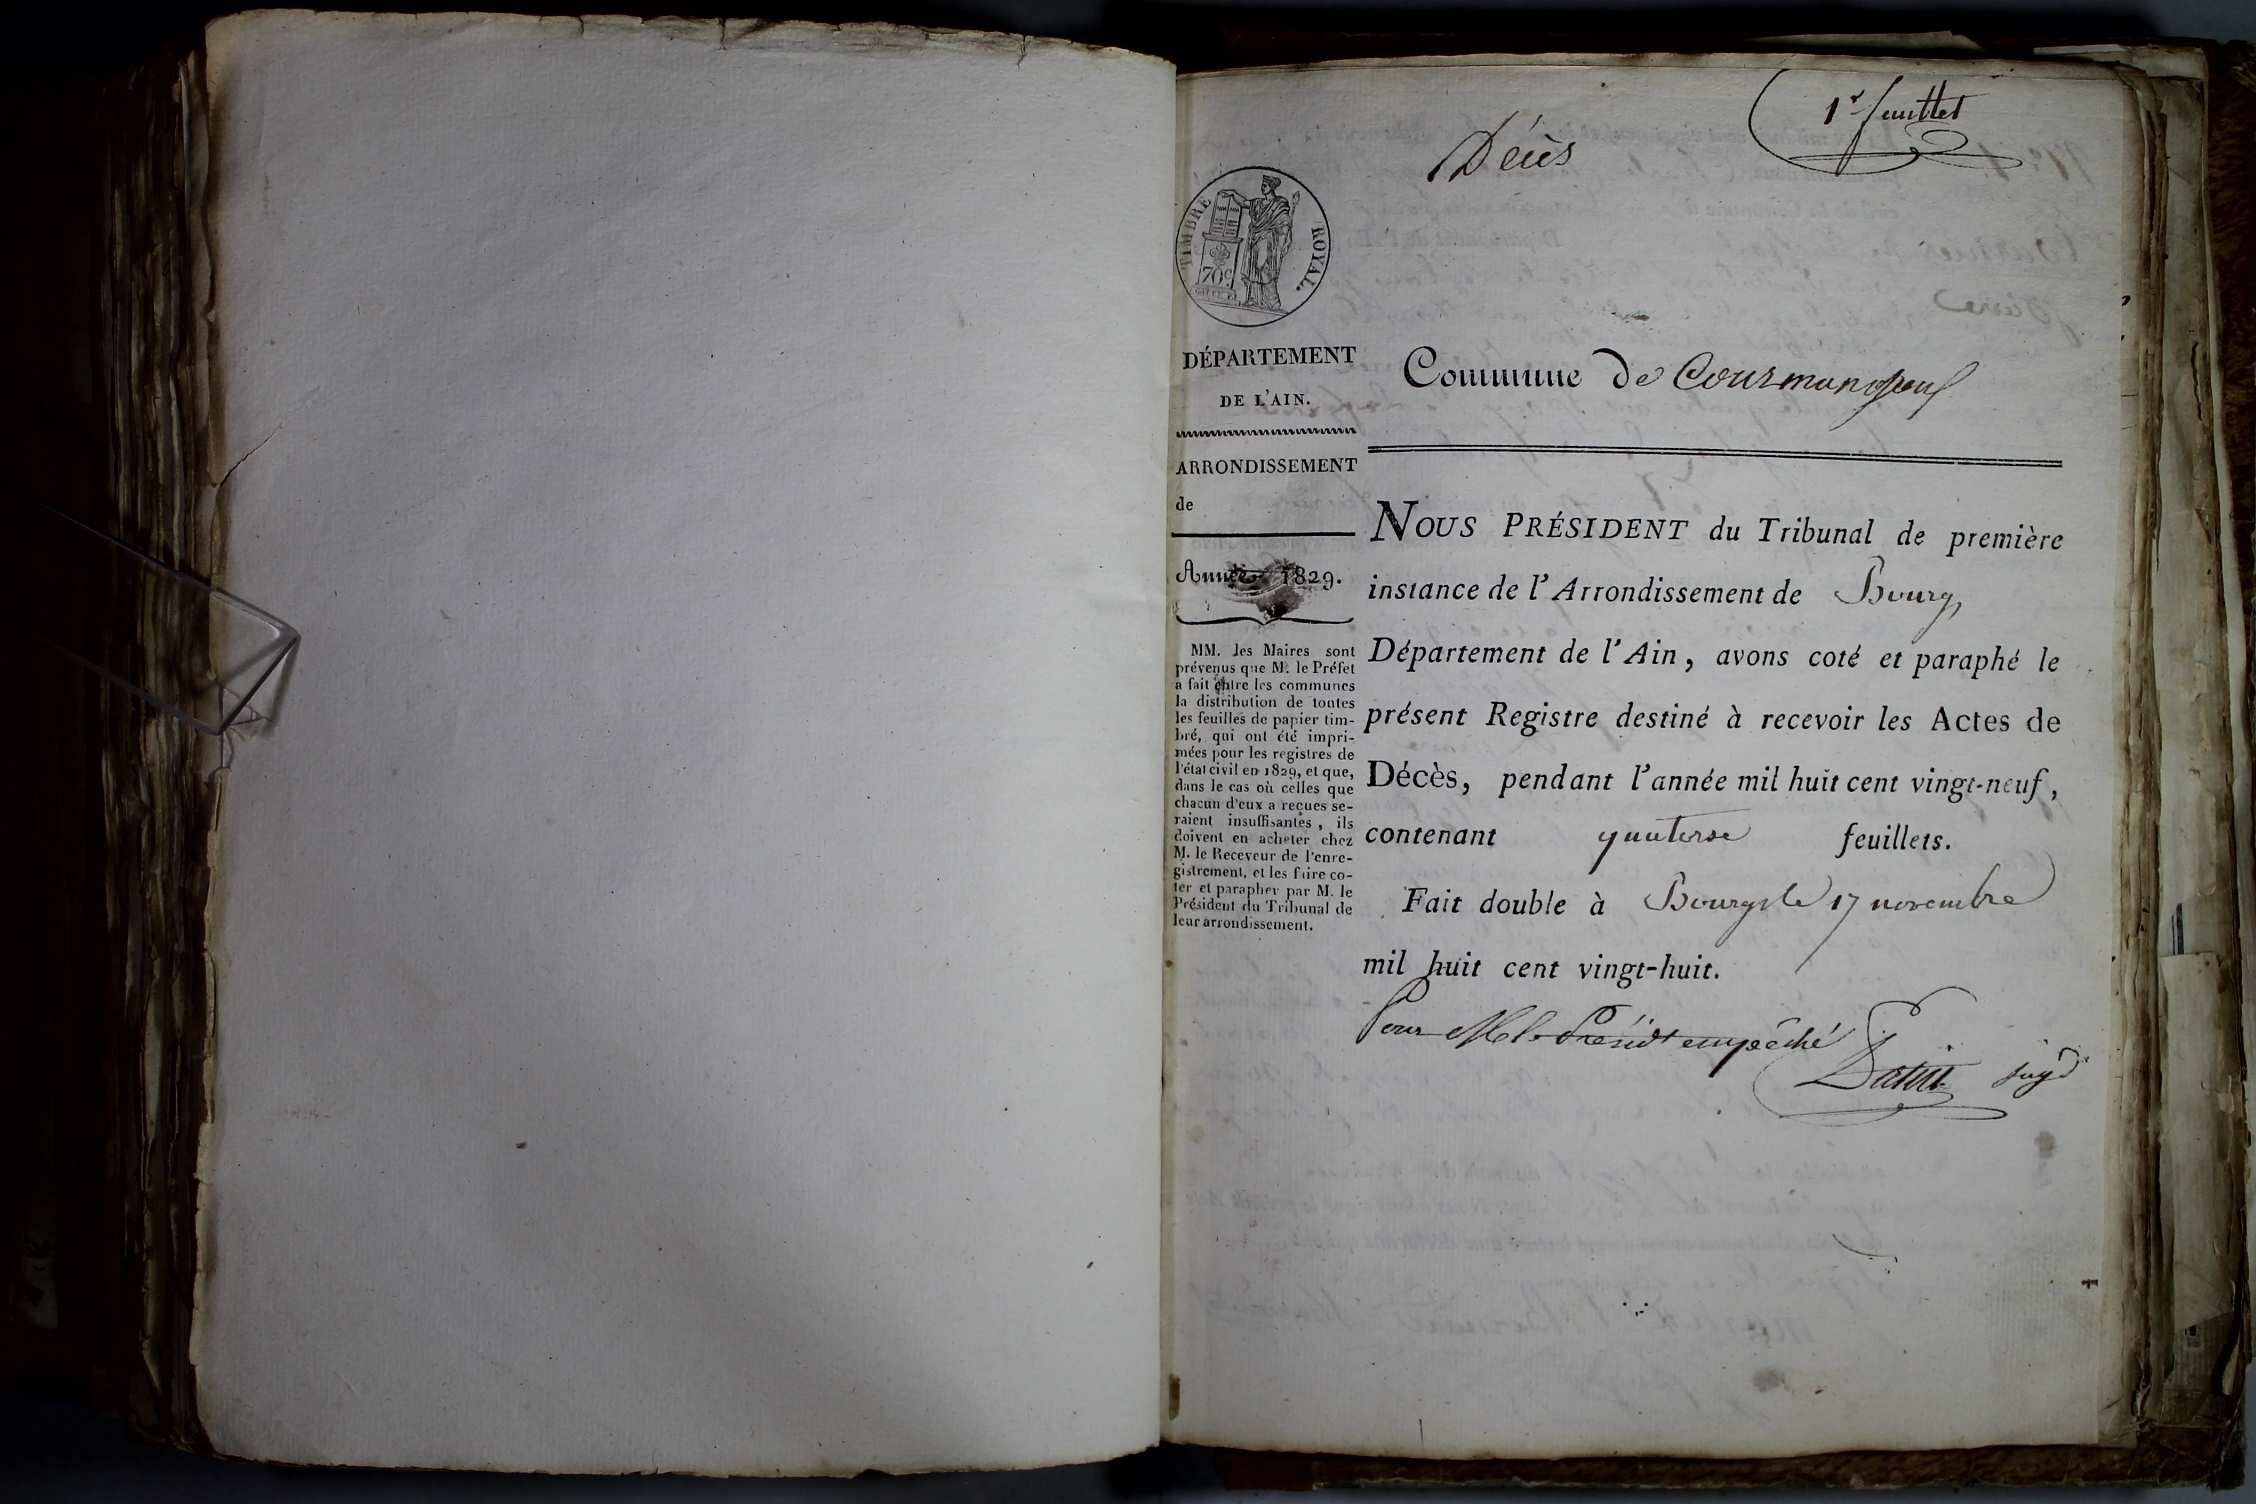 1r feuillet
Décès
TIMBRE ROYAL.
70c
DÉPARTEMENT
DE L'AIN.
ARRONDISSEMENT
de
Année 1829.
MM. les Maires sont
prévenus que M. le Préfet
a fait entre les communes
la distribution de toutes
les feuilles de papier tim-
bré, qui ont été impri-
mées pour les registres de
l'état civil en 1829, et que,
dans le cas où celles que
chacun d'eux a reçues se-
raient insuffisantes, ils
doivent en acheter chez
M. le Receveur de l'enre-
gistrement, et les faire co-
ter et parapher par M. le
Président du Tribunal de
leur arrondissement.
Commune de Courmangoux
NOUS PRÉSIDENT du Tribunal de première
instance de l'Arrondissement de Bourg,
Département de l'Ain, avons coté et paraphé le
présent Registre destiné à recevoir les Actes de
Décès, pendant l'année mil huit cent vingt-neuf,
contenant quatorse feuillets.
Fait double à Bourg le 17 novembre
mil huit cent vingt-huit.
Pour M. le Présidt empêché
juge